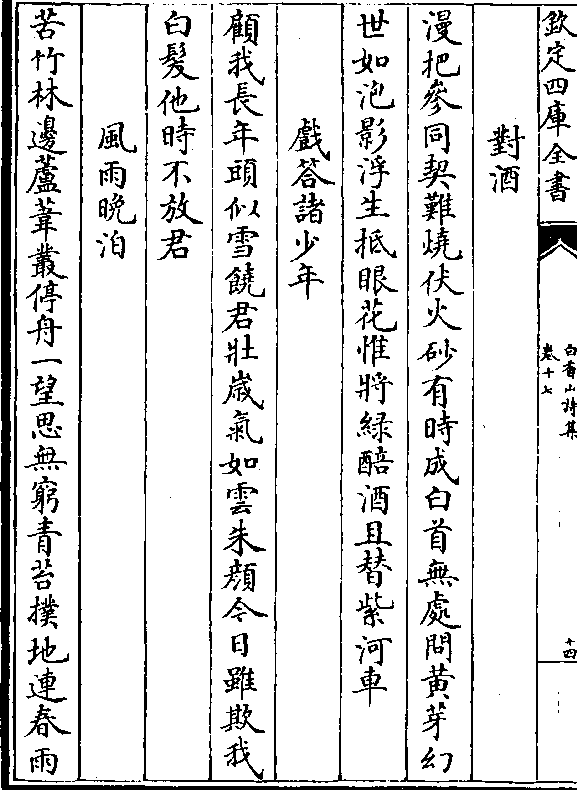 欽定四庫全書
白香山詩集
卷十七
十四
對酒
漫把參同契難燒伏火砂有時成白首無處問黃芽幻
世如泡影浮生抵眼花惟將緑醅酒且替紫河車
戲答諸少年
顧我長年頭似雪饒君壯嵗氣如雲朱顔今日雖欺我
白髮他時不放君
風雨晚泊
苦竹林邊蘆葦叢停舟一望思無窮青苔撲地連春雨